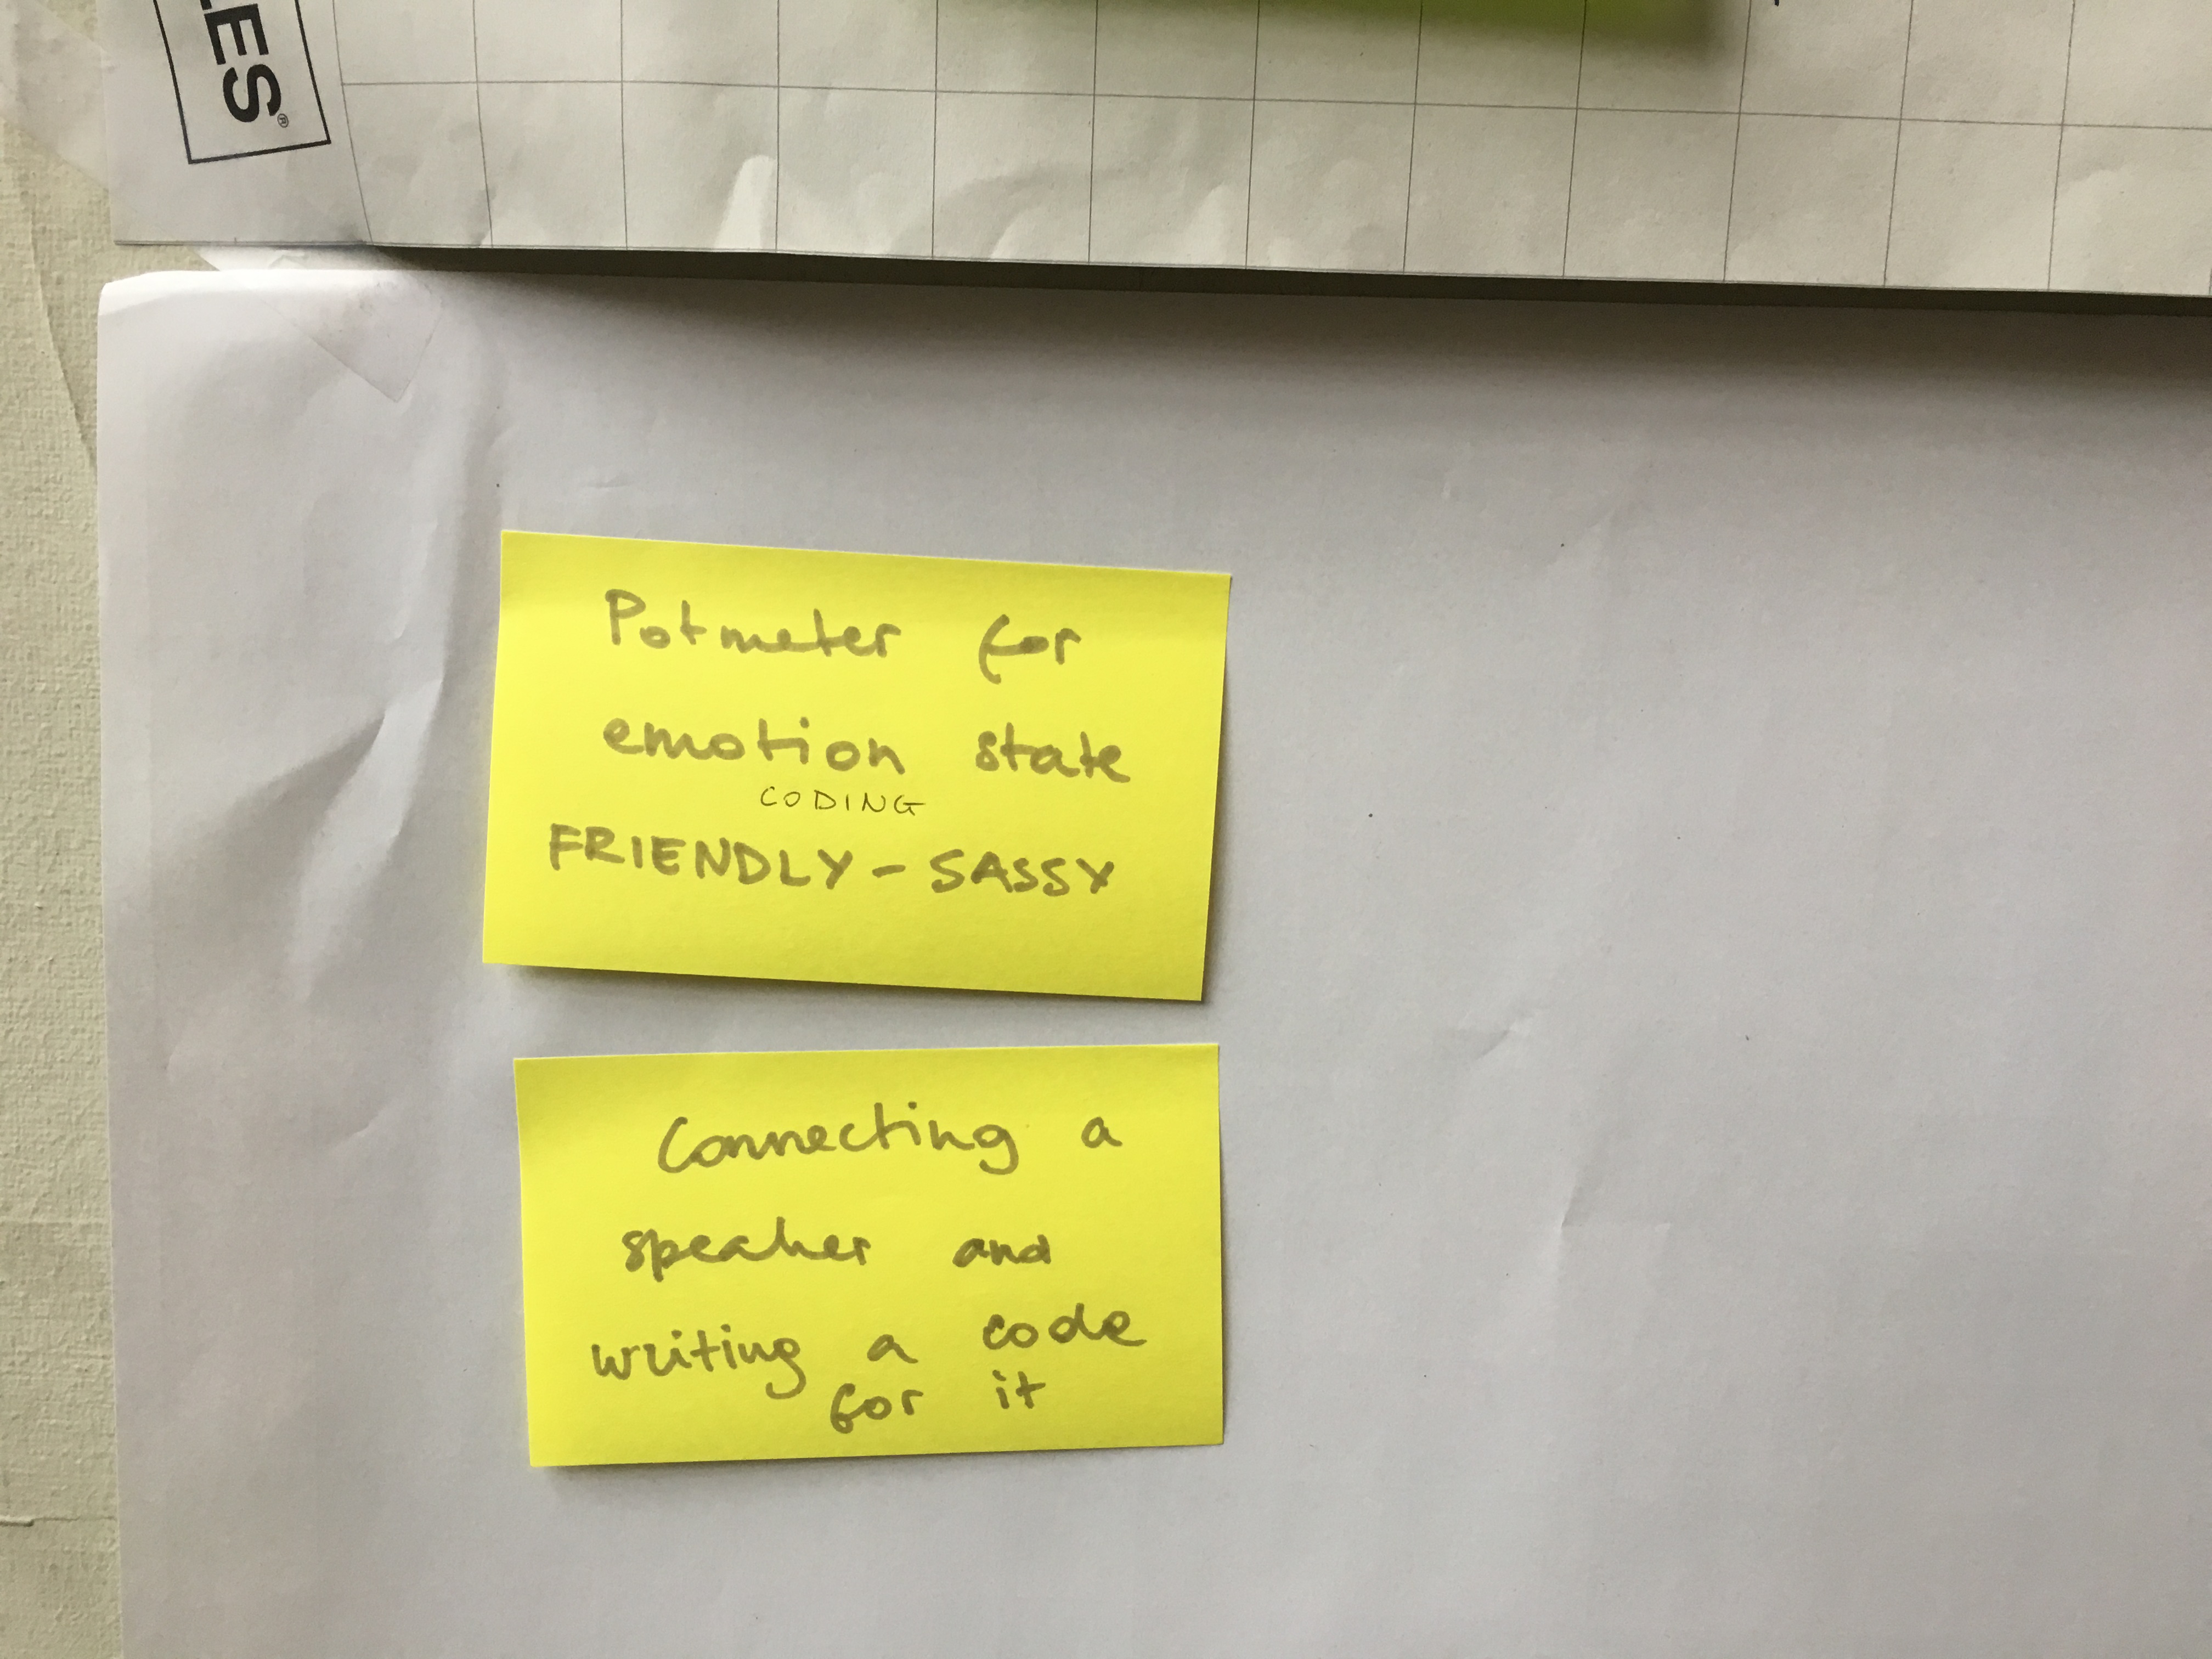 LES®
Potmeter for
emotion state
CODING
FRIENDLY - SASSY
Connecting a
speaker and
writing a code
for it